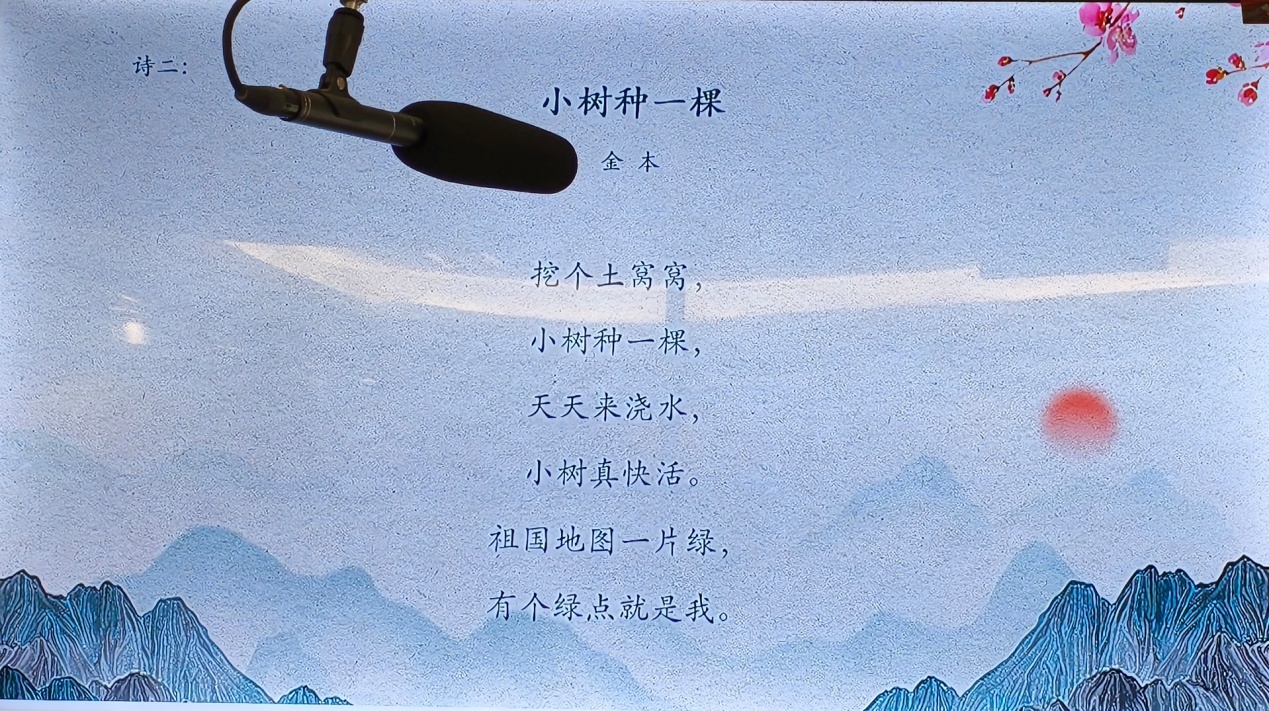 诗二:
小树种一棵
金 本
挖个土窝窝,
小树种一棵,
天天来浇水,
小树真快活。
祖国地图一片绿,
有个绿点就是我。